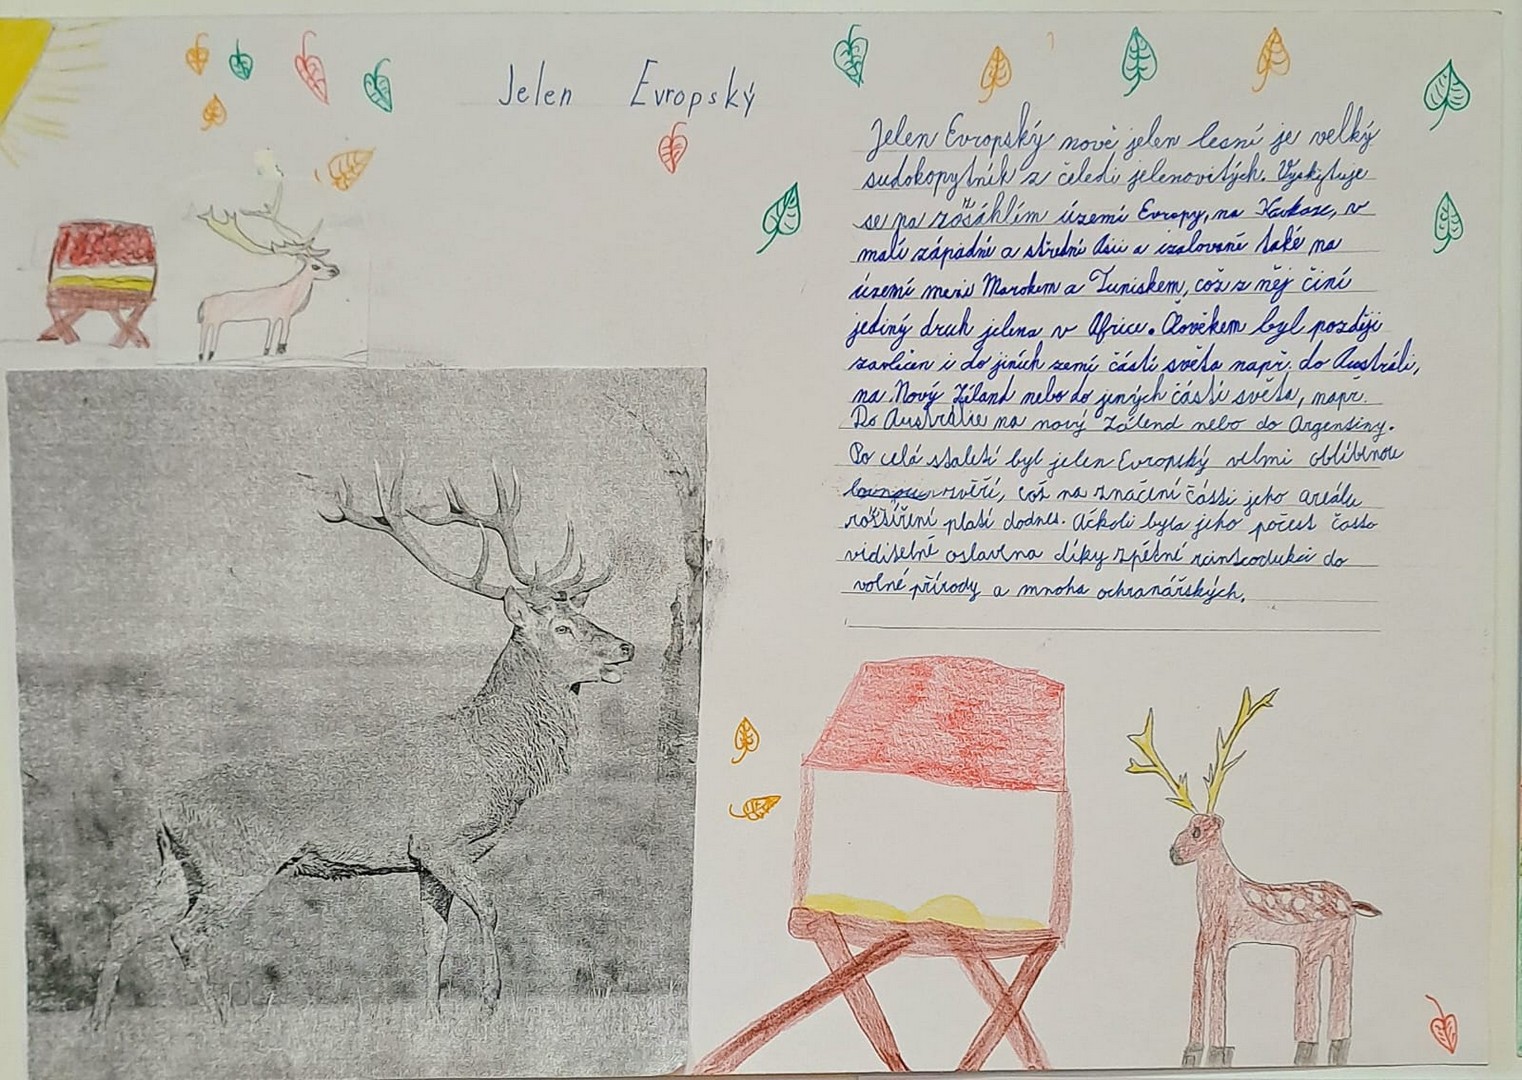 Jelen Evropský
Jelen Evropský nově jelen lesní je velký
sudokopytník z čeledi jelenovitých. Vyskytuje
se na rozsáhlím území Evropy, na Kavkaze, v
malí západní a střední Asii a izolovaně také na
území mezi Marokem a Tuniskem, což z něj činí
jediný druh jelena v Africe. Člověkem byl později
zavlčen i do jiních zemí částí světa např. do Austráli,
na Nový Zéland nebo do jiných částí světa, např.
Do Austrálie na nový Zélend nebo do Argentiny.
Po celá staletí byl jelen Evropský velmi oblíbenou
zvěří, což na značení části jeho areálu
rozšíření platí dodnes. Ačkoli byla jeho počest často
viditelně oslavena díky zpětní reintrodukci do
volné přírody a mnoha ochranářských.